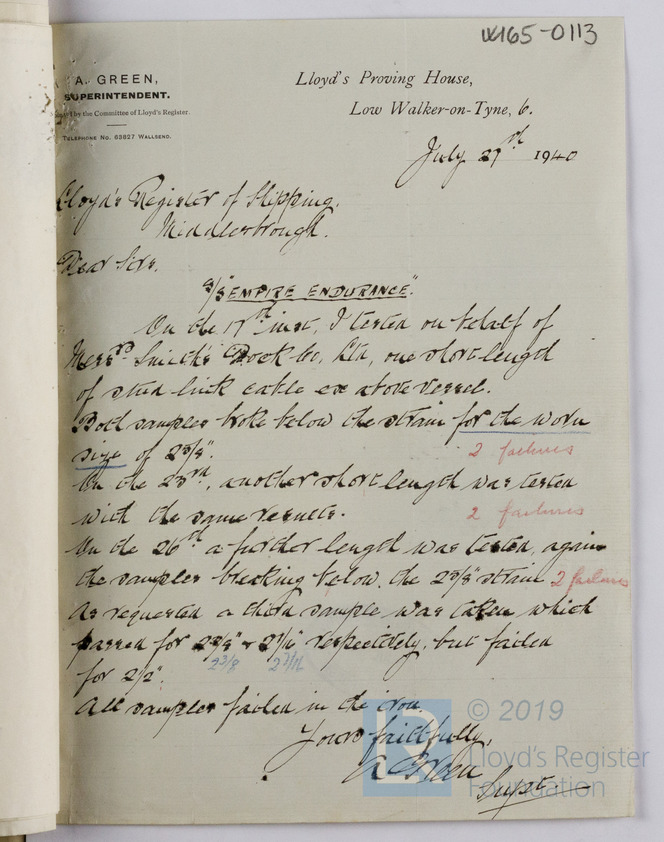 W165-0113
A. GREEN,
SUPERINTENDENT.
by the Committee of Lloyd's Register.
TELEPHONE No. 63827 WALLSEND.
Lloyd's Proving House,
Low Walker-on-Tyne, 6.
July 27th 1940
Lloyd's Register of Shipping.
Middlesbrough.
Dear Sirs.
S/S "EMPIRE ENDURANCE".
On the 17th inst, I tested on behalf of
Messrs Smith's Dock Co, Ltd, one short length
of stud link cable ex above vessel.
Both samples broke below the strain for the worn
size of 2 3/8".
2 failures
On the 23rd, another short length was tested
with the same results.
2 failures
On the 26th a further length was tested, again
the samples breaking below the 2 3/8" strain 2 failures
As requested a third sample was taken which
passed for 2 3/8" & 2 7/16" respectively, but failed
2 3/8 2 7/16
for 2 1/2".
All samples failed in the iron.
Yours faithfully,
A Green
Supt.
© 2019
LR
Lloyd's Register
Foundation